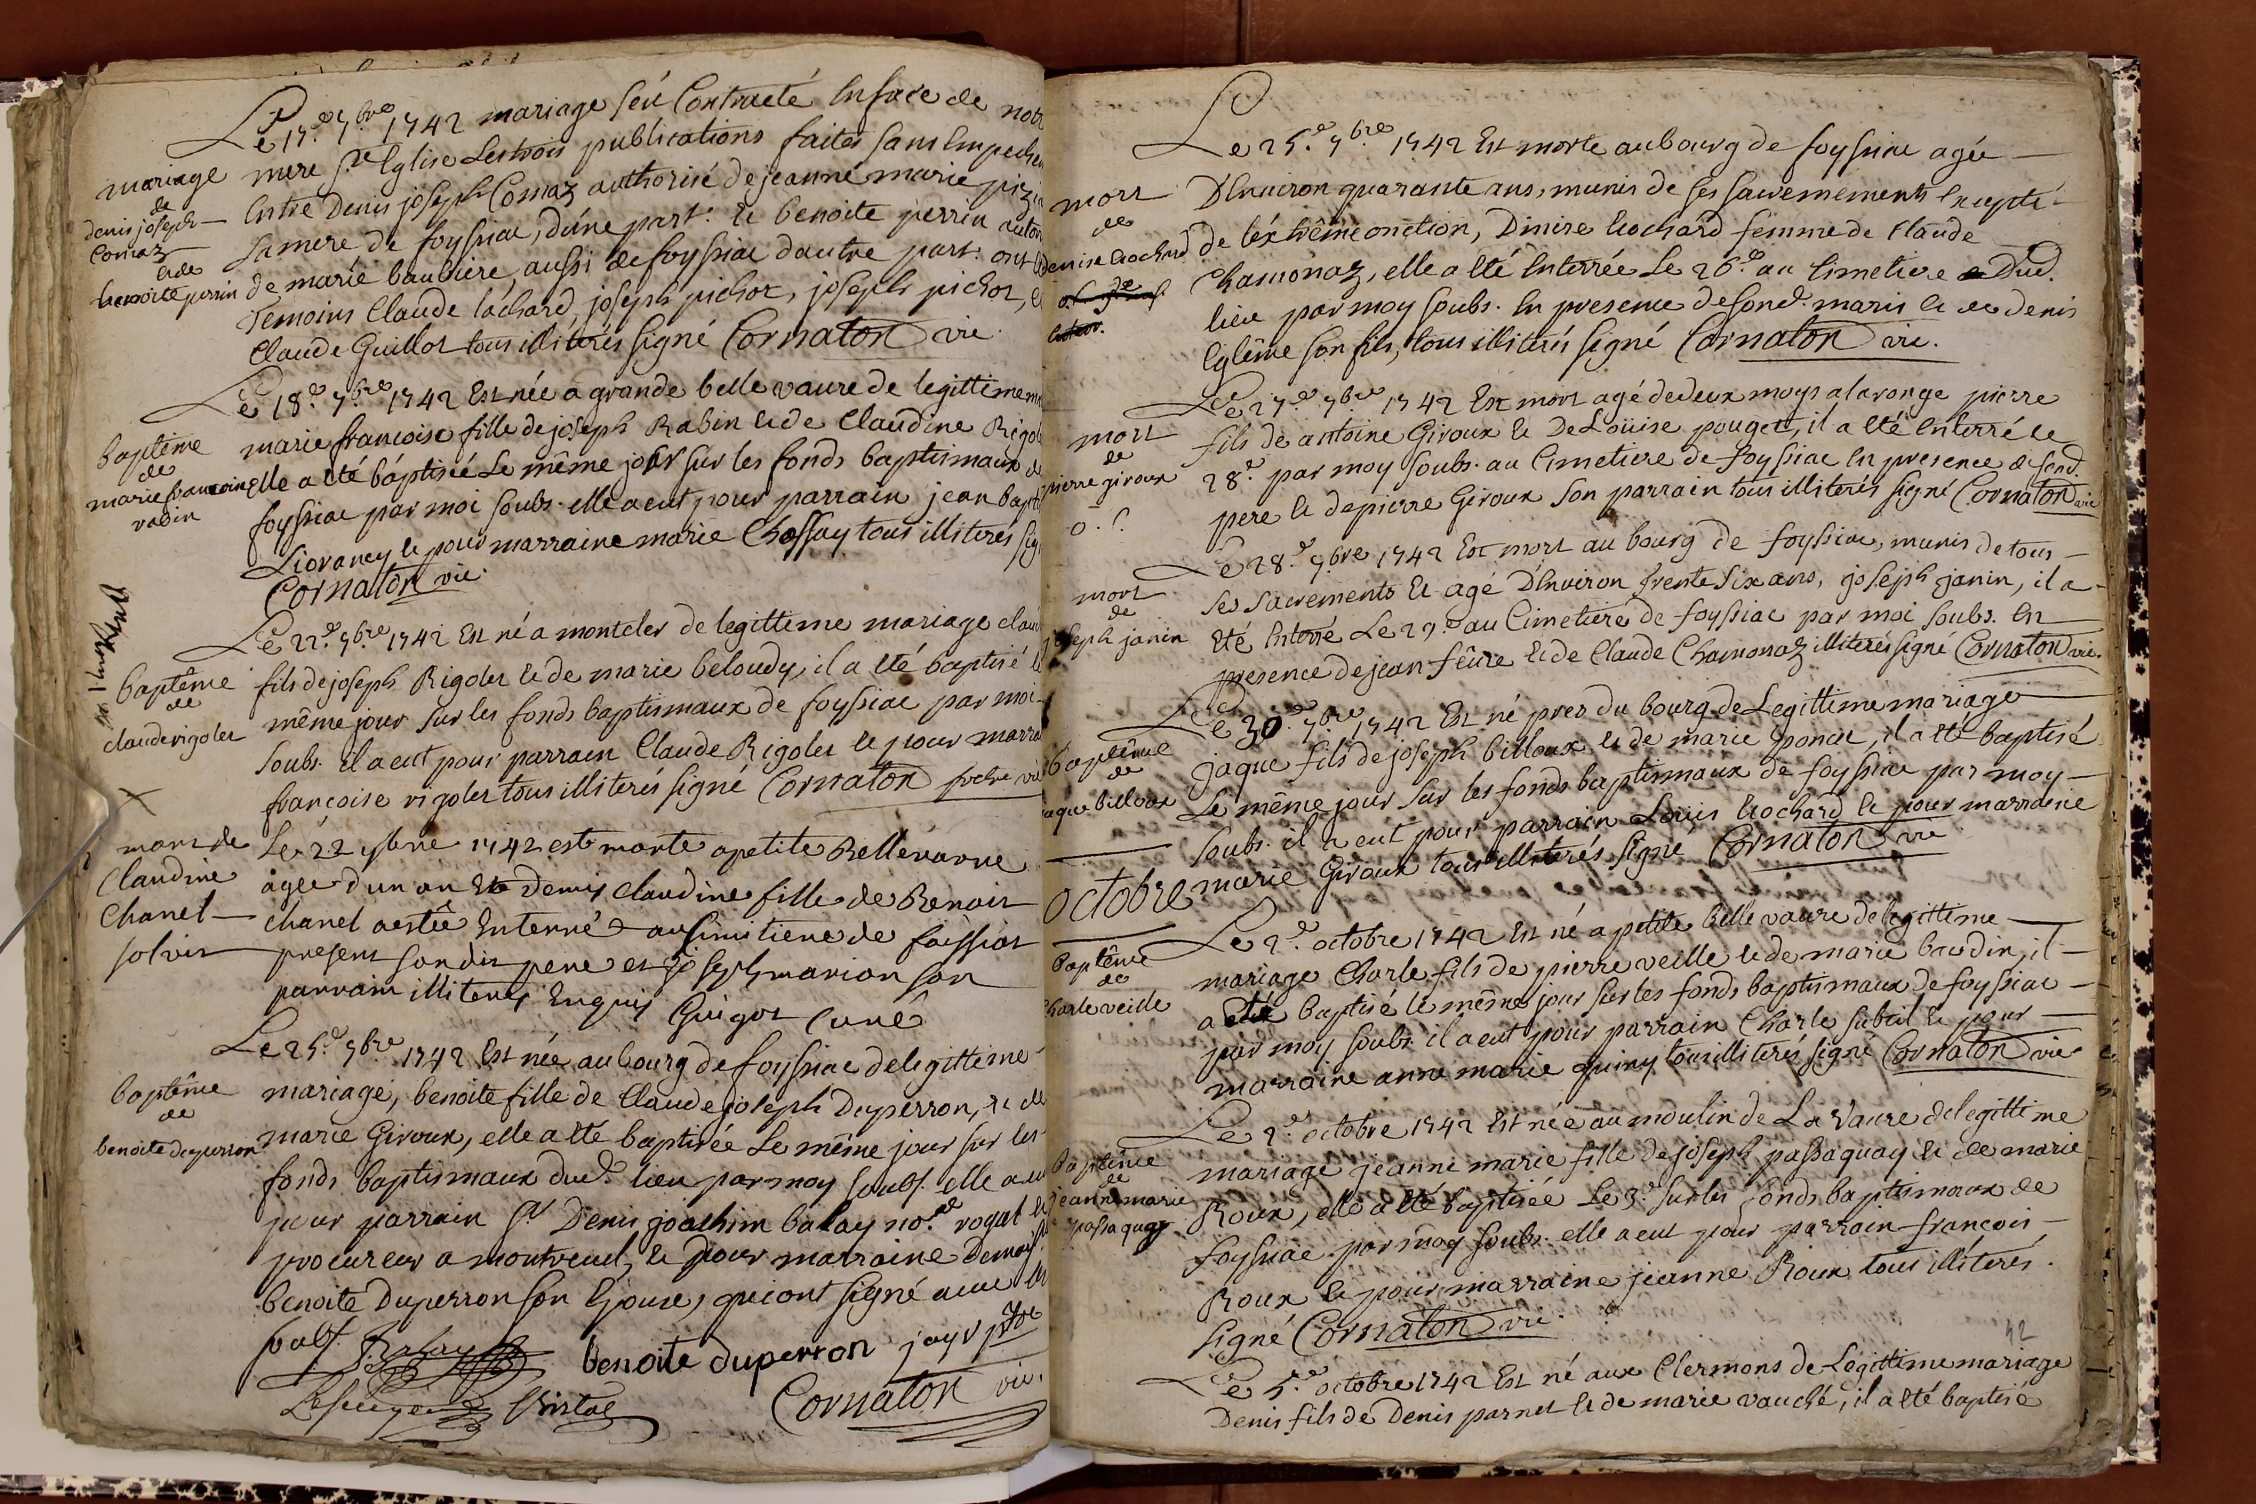 Le 17.e 7bre 1742 mariage s'est Contracté En face de notr
mere ste Eglise Les trois publications faites sans Empeche
mariage
de
denis joseph
Comaz
et de
benoite perrin
Entre Denis joseph Comaz authorisé de jeanne marie
sa mere de foyssiac, d'une part. et benoite perrin autor
de marie baubiere aussi de foyssiac d'autre part. ont
Temoins Claude lachard, joseph pichot, joseph pichot, et
Claude Guillot tous illiterés signé Cornaton vic.
Le 18.e 7bre 1742 Est née a grande belle vavre de legittime m
baptême
de
marie francoise
rabin
marie francoise fille de joseph Rabin et de Claudine Rigol
elle a Eté baptisée Le même jour sur les fonds baptismaux de
foyssiac par moi soubs. elle a eut pour parrain jean bapt
Liorancy et pour marraine marie Chossay tous illiterés sig
Cornaton vic.
Le 22.e 7bre 1742 Est né a monteler de legittime mariage clau
baptême
de
claude rigolet
fils de joseph Rigolet et de marie beloudy, il a Eté baptisé le
même jour sur les fonds baptismaux de foyssiac par moi
soubs. il a eut pour parrain Claude Rigolet et pour marra
francoise rigolet tous illiterés signé Cornaton vic
mort de
Claudine
Chanel
solvit
Le 22 7bre 1742 est morte a petite Bellevavre
agée d'un an Et Demis claudine fille de Benoit
chanel a estée Enterré au Cimitiere de foissiat
present son dit pere et joseph marion son
parrain illiterés Enquis Guigot Curé
Le 25.e 7bre 1742 Est née au bourg de foyssiac de legittime
baptême
de
benoite duperron
mariage, benoite fille de Claude joseph Duperron, et de
marie Giroux, elle a Eté baptisée Le même jour sur les
fonds baptismaux dud. lieu par moy soubs. elle a eut
pour parrain sr Denis joachim balay no.re royal et
procureur a montrevel, et pour marraine demois
benoite Duperron son Epouse, qui ont signé avec
soubs. Balay benoite duperron jayr ptre
Cornaton vic.
Le 25.e 7bre 1742 Est morte au bourg de foyssiac agée
mort
de
denise brochard
D'Environ quarante ans, munis de ses sacremements Excepté
de l'extrême onction, Dinire brochard femme de Claude
Chamonaz, elle a Eté Enterrée Le 26.e au Cimetiere Dud.
lieu par moy soubs. En presence de son d. maris et de denis
Eglême son fils, tous illiterés signé Cornaton vic.
Le 27.e 7bre 1742 Est mort agé de deux moys a laronge pierre
mort
de
pierre giroux
fils de antoine Giroux et De Loüise pouget, il a Eté Enterré le
28.e par moy soubs. au Cimetiere de foyssiac En presence de sond.
pere et de pierre Giroux son parrain tous illiterés signé Cornaton vic
Le 28.e 7bre 1742 Est mort au bourg de foyssiac, munis de tous
mort
de
joseph janin
ses sacrements et agé D'Environ trente six ans, joseph janin, il a
Eté Enterré Le 29.e au Cimetiere de foyssiac par moi soubs. En
presence de jean fêure et de Claude Chamonaz illiterés signé Cornaton vic.
Le 30.e 7bre 1742 Est né pres du bourg de Legittime mariage
baptême
de
jaque billoux
jaque fils de joseph billoux et de marie poncet, il a Eté baptisé
Le même jour sur les fonds baptismaux de foyssiac par moy
soubs. il a eut pour parrain Loüis brochard et pour marraine
marie Giroux tous illiterés signé Cornaton vic
octobre
Le 2.e octobre 1742 Est né a petite belle vavre de legittime
baptême
de
charle veille
mariage Charle fils de pierre veille et de marie baudin, il
a Eté baptisé le même jour sur les fonds baptismaux de foyssiac
par moy soubs. il a eut pour parrain Charle subtil et pour
marraine anne marie quiny tous illiterés signé Cornaton vic
Le 2.e octobre 1742 Est née au moulin de La Vavre de legittime
baptême
de
jeanne marie
passaquay
mariage jeanne marie fille de joseph passaquay et de marie
Roux, elle a Eté baptisée Le 3.e sur les fonds baptismaux de
foyssiac par moy soubs. elle a eut pour parrain francois
Roux et pour marraine jeanne Roux tous illiterés.
signé Cornaton vic.
42
Le 5.e octobre 1742 Est né aux Clermons de Legittime mariage
Denis fils de Denis parnet et de marie vauché, il a Eté baptisé